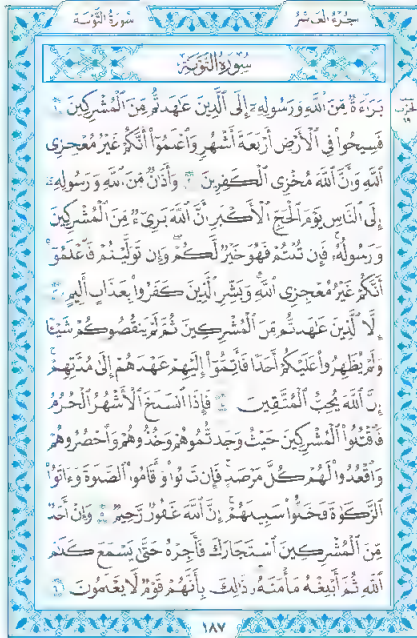 سُورَةُ التَّوْبَةِ
الجُزْءُ العَاشِرُ
سُورَةُ التَّوْبَةِ
بَرَآءَةٌ مِّنَ ٱللَّهِ وَرَسُولِهِۦٓ إِلَى ٱلَّذِينَ عَٰهَدتُّم مِّنَ ٱلْمُشْرِكِينَ ١
فَسِيحُوا۟ فِى ٱلْأَرْضِ أَرْبَعَةَ أَشْهُرٍ وَٱعْلَمُوٓا۟ أَنَّكُمْ غَيْرُ مُعْجِزِى
ٱللَّهِ وَأَنَّ ٱللَّهَ مُخْزِى ٱلْكَٰفِرِينَ ٢ وَأَذَٰنٌ مِّنَ ٱللَّهِ وَرَسُولِهِۦٓ
إِلَى ٱلنَّاسِ يَوْمَ ٱلْحَجِّ ٱلْأَكْبَرِ أَنَّ ٱللَّهَ بَرِىٓءٌ مِّنَ ٱلْمُشْرِكِينَ
وَرَسُولُهُۥ فَإِن تُبْتُمْ فَهُوَ خَيْرٌ لَّكُمْ وَإِن تَوَلَّيْتُمْ فَٱعْلَمُوٓا۟
أَنَّكُمْ غَيْرُ مُعْجِزِى ٱللَّهِ وَبَشِّرِ ٱلَّذِينَ كَفَرُوا۟ بِعَذَابٍ أَلِيمٍ ٣
إِلَّا ٱلَّذِينَ عَٰهَدتُّم مِّنَ ٱلْمُشْرِكِينَ ثُمَّ لَمْ يَنقُصُوكُمْ شَيْـًٔا
وَلَمْ يُظَٰهِرُوا۟ عَلَيْكُمْ أَحَدًا فَأَتِمُّوٓا۟ إِلَيْهِمْ عَهْدَهُمْ إِلَىٰ مُدَّتِهِمْ
إِنَّ ٱللَّهَ يُحِبُّ ٱلْمُتَّقِينَ ٤ فَإِذَا ٱنسَلَخَ ٱلْأَشْهُرُ ٱلْحُرُمُ
فَٱقْتُلُوا۟ ٱلْمُشْرِكِينَ حَيْثُ وَجَدتُّمُوهُمْ وَخُذُوهُمْ وَٱحْصُرُوهُمْ
وَٱقْعُدُوا۟ لَهُمْ كُلَّ مَرْصَدٍ فَإِن تَابُوا۟ وَأَقَامُوا۟ ٱلصَّلَوٰةَ وَءَاتَوُا۟
ٱلزَّكَوٰةَ فَخَلُّوا۟ سَبِيلَهُمْ إِنَّ ٱللَّهَ غَفُورٌ رَّحِيمٌ ٥ وَإِنْ أَحَدٌ
مِّنَ ٱلْمُشْرِكِينَ ٱسْتَجَارَكَ فَأَجِرْهُ حَتَّىٰ يَسْمَعَ كَلَٰمَ
ٱللَّهِ ثُمَّ أَبْلِغْهُ مَأْمَنَهُۥ ذَٰلِكَ بِأَنَّهُمْ قَوْمٌ لَّا يَعْلَمُونَ ٦
١٨٧